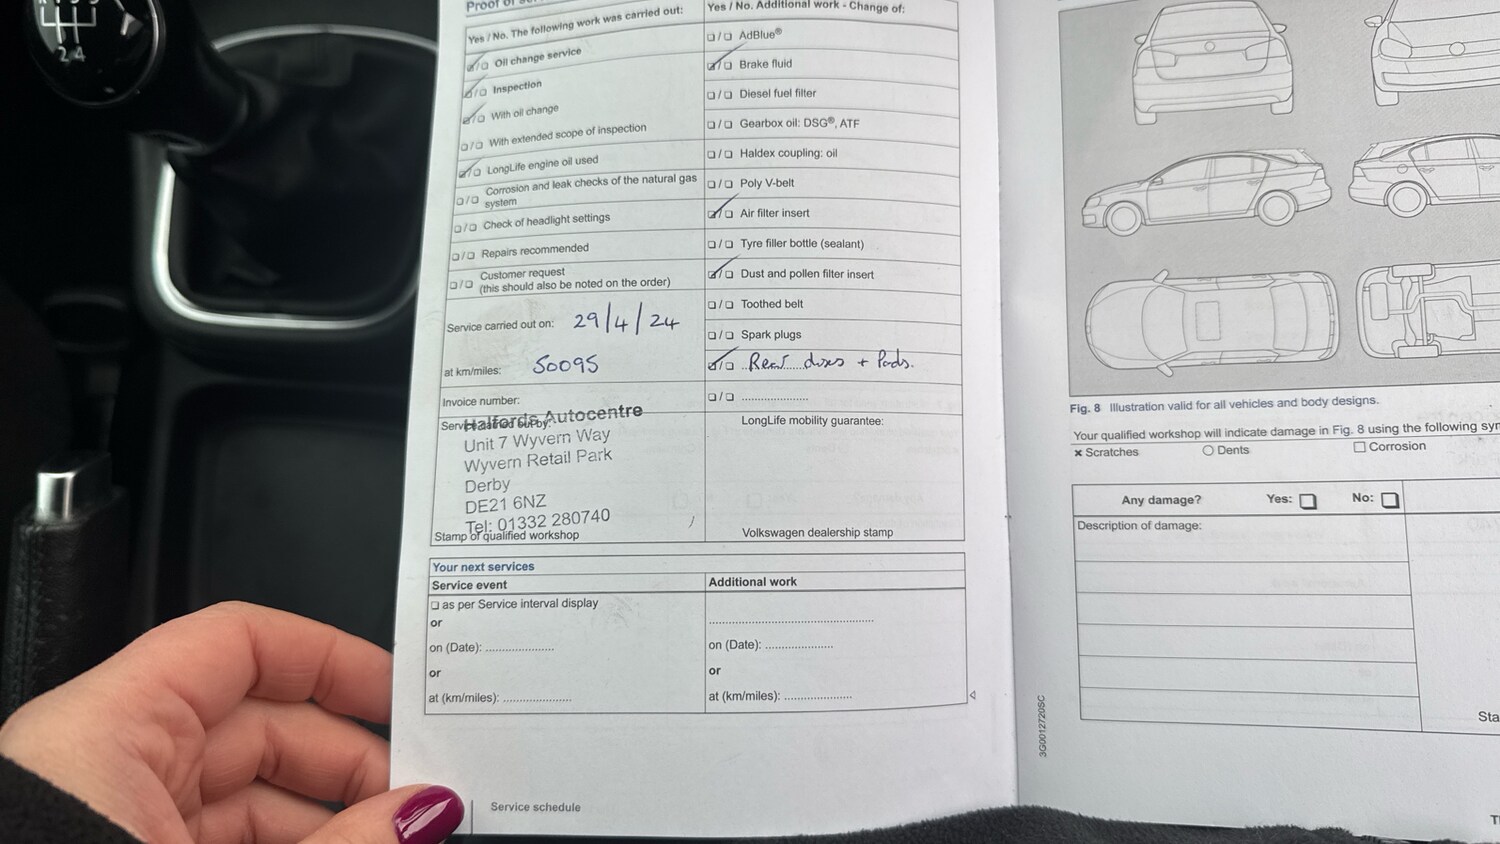 2 4
Proof of
Yes / No. The following work was carried out:
Oil change service
Inspection
With oil change
With extended scope of inspection
LongLife engine oil used
Corrosion and leak checks of the natural gas
system
Check of headlight settings
Repairs recommended
Customer request
(this should also be noted on the order)
Service carried out on: 29/4/24
at km/miles: 50095
Invoice number:
Halfords Autocentre
Unit 7 Wyvern Way
Wyvern Retail Park
Derby
DE21 6NZ
Tel: 01332 280740
Stamp of qualified workshop
Yes / No. Additional work - Change of:
AdBlue®
Brake fluid
Diesel fuel filter
Gearbox oil: DSG®, ATF
Haldex coupling: oil
Poly V-belt
Air filter insert
Tyre filler bottle (sealant)
Dust and pollen filter insert
Toothed belt
Spark plugs
Rear discs + Pads.
....................
LongLife mobility guarantee:
Volkswagen dealership stamp
Your next services
Service event
as per Service interval display
or
on (Date): ....................
or
at (km/miles): ....................
Additional work
................................................
on (Date): ....................
or
at (km/miles): ....................
Service schedule
Fig. 8 Illustration valid for all vehicles and body designs.
Your qualified workshop will indicate damage in Fig. 8 using the following
× Scratches
Dents
Corrosion
Any damage? Yes: No:
Description of damage:
3G0012720SC